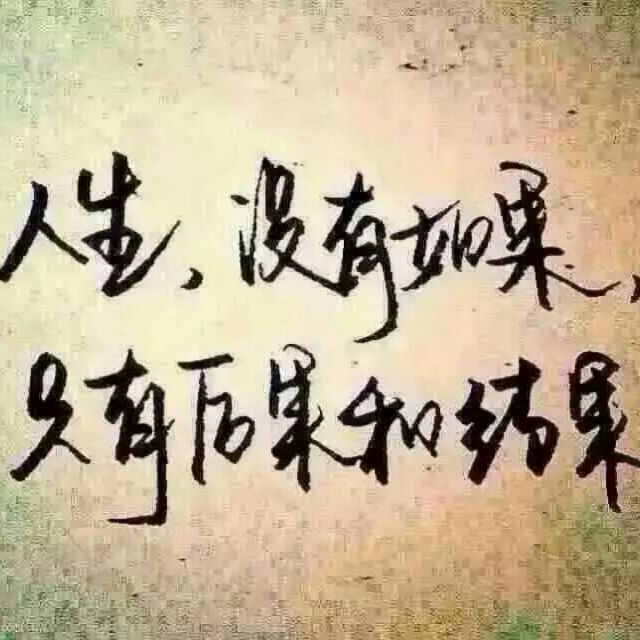 人生、没有如果,
只有后果和结果